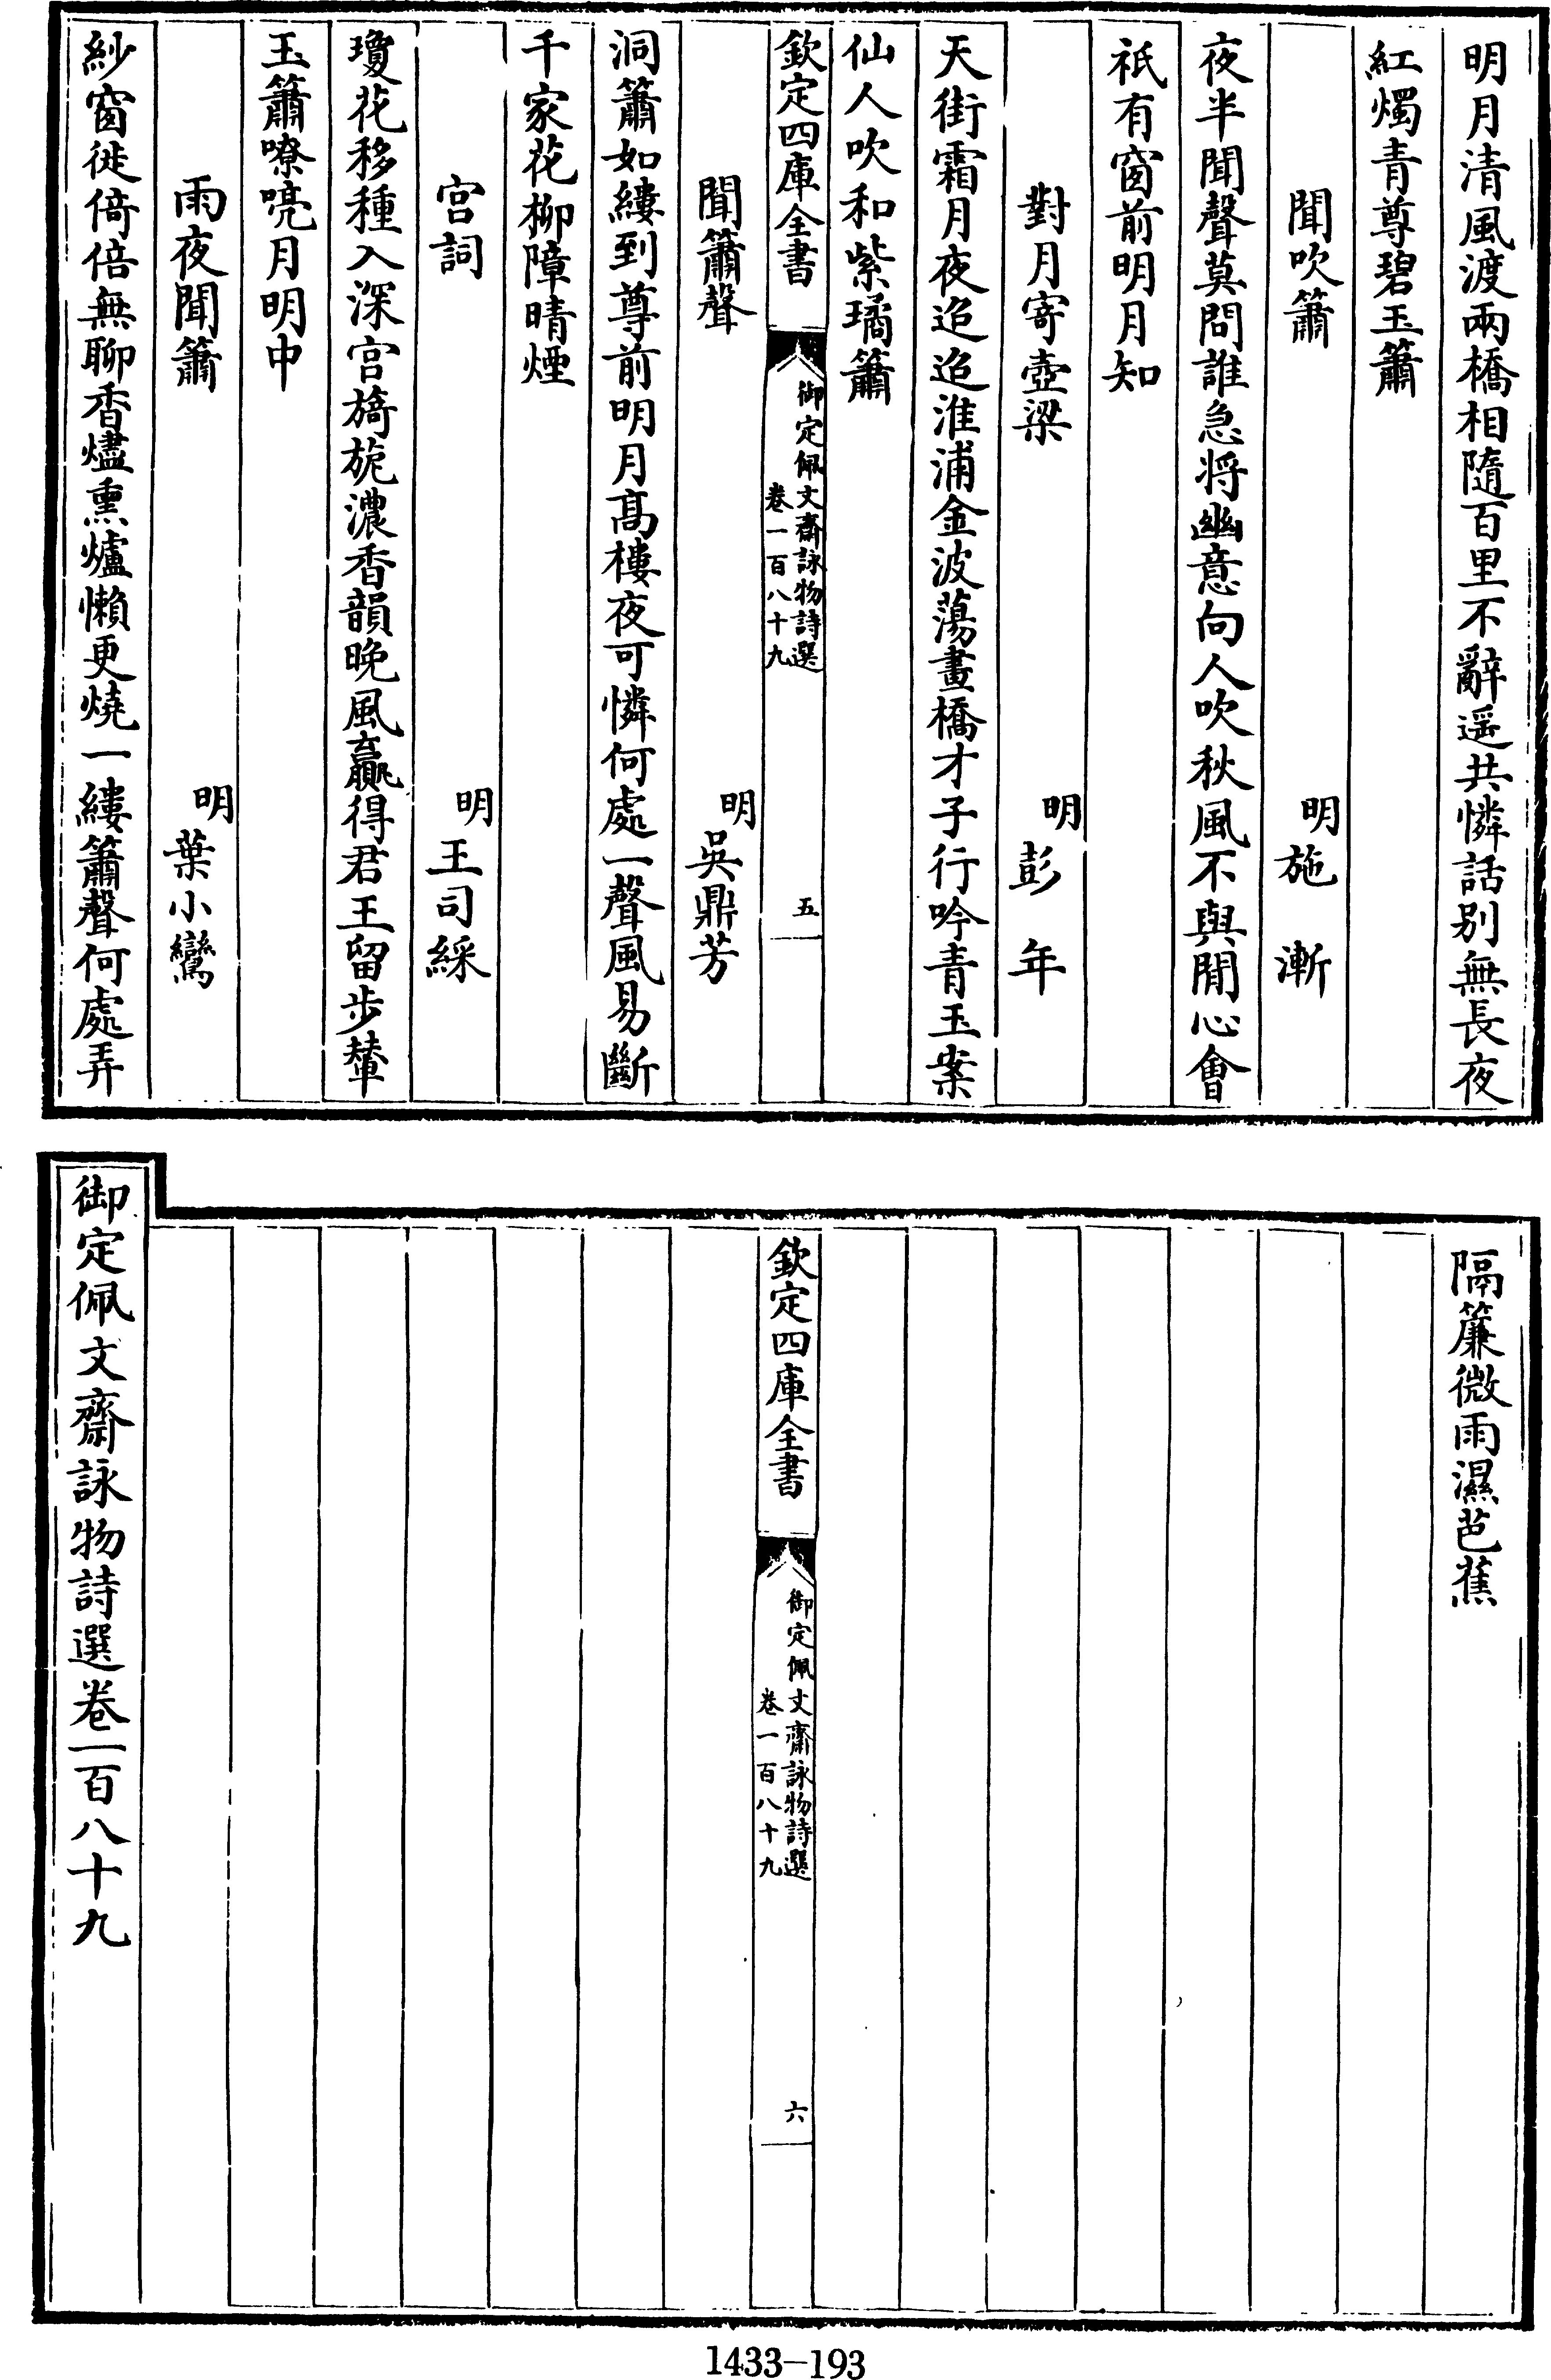 明月清風渡兩橋相隨百里不辭遥共憐話别無長夜
紅燭青尊碧玉簫
聞吹簫
明施漸
夜半聞聲莫問誰急将幽意向人吹秋風不與閒心會
祇有窗前明月知
對月寄壺梁
明彭年
天街霜月夜迢迢淮浦金波蕩畫橋才子行吟青玉案
仙人吹和紫璚簫
欽定四庫全書
御定佩文齋詠物詩選
卷一百八十九
五
聞簫聲
明吳鼎芳
洞簫如縷到尊前明月髙樓夜可憐何處一聲風易斷
千家花柳障晴煙
宫詞
明王司綵
瓊花移種入深宫旖旎濃香韻晚風贏得君王留步輦
玉簫嘹喨月明中
雨夜聞簫
明葉小鸞
紗窗徙倚倍無聊香燼熏爐懶更燒一縷簫聲何處弄
隔簾微雨濕芭蕉
欽定四庫全書
御定佩文齋詠物詩選
卷一百八十九
六
御定佩文齋詠物詩選卷一百八十九
1433-193